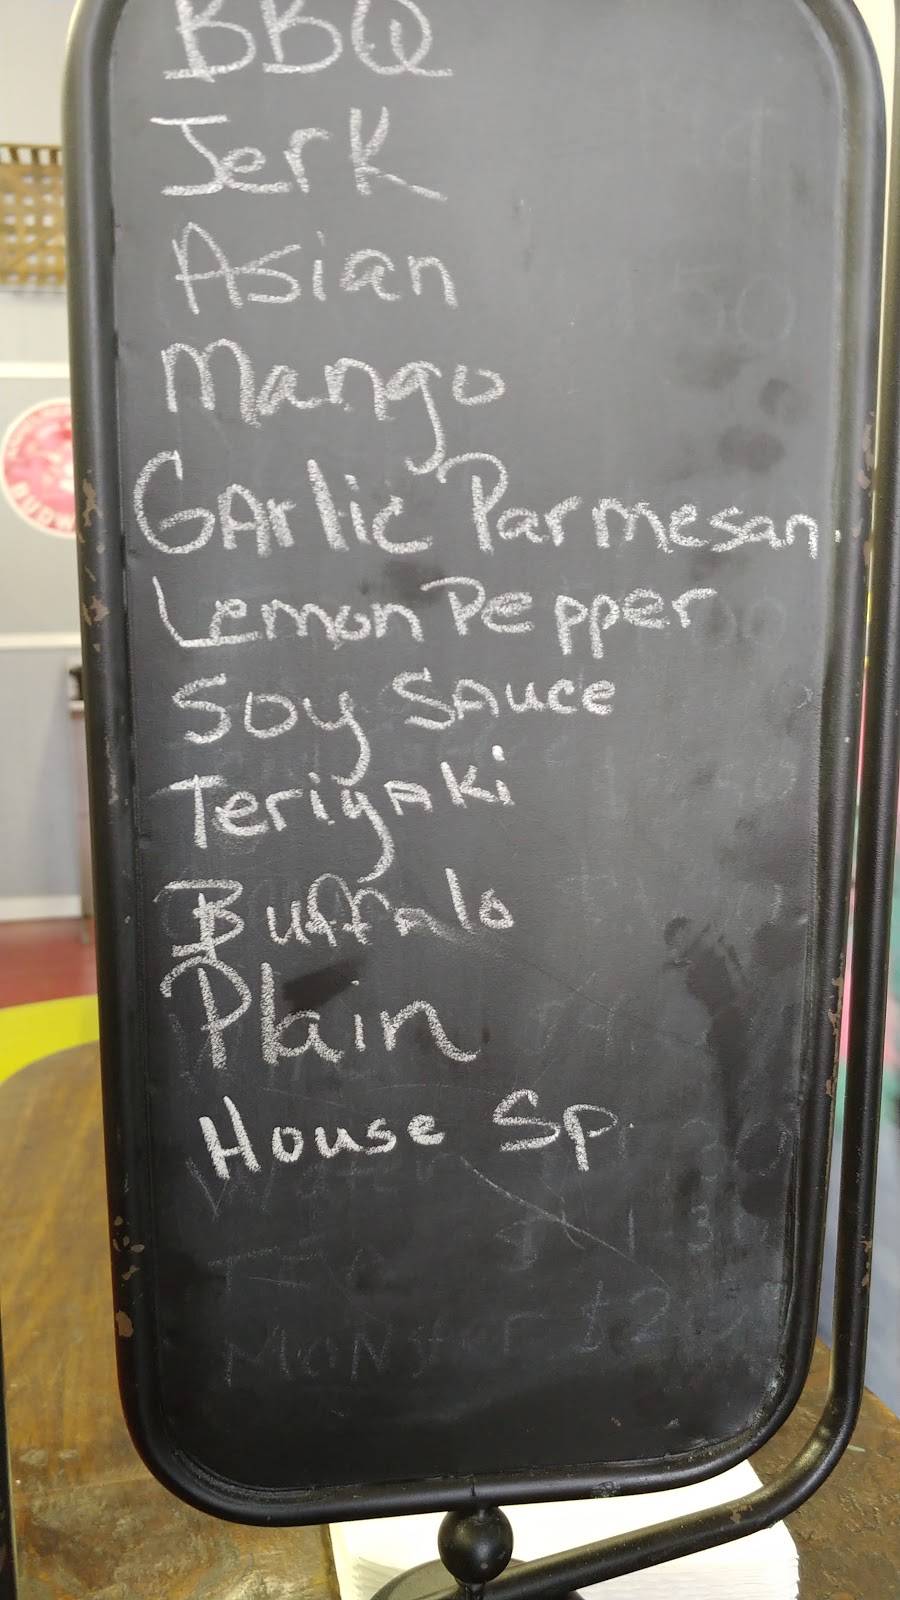 BBQ
Jerk
Asian
Mango
GArlic Parmesan
Lemon Pepper
Soy SAuce
TeriyAki
Buffalo
Plain
House Sp.